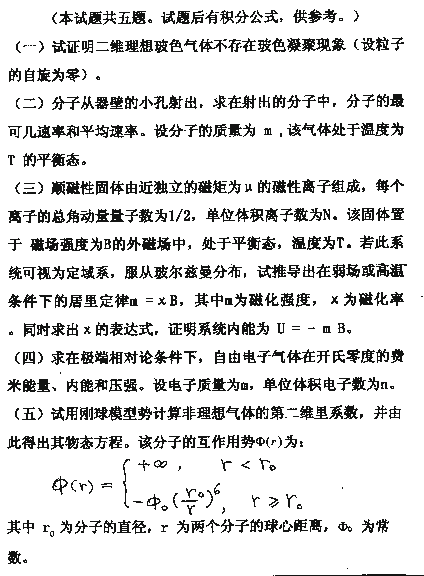 (本试题共五题。试题后有积分公式，供参考。)
(一) 试证明二维理想玻色气体不存在玻色凝聚现象 (设粒子
的自旋为零) 。
(二) 分子从器壁的小孔射出，求在射出的分子中，分子的最
可几速率和平均速率。设分子的质量为 m ,该气体处于温度为
T 的平衡态。
(三) 顺磁性固体由近独立的磁矩为μ的磁性离子组成，每个
离子的总角动量量子数为1/2，单位体积离子数为N。该固体置
于 磁场强度为B的外磁场中，处于平衡态，温度为T。若此系
统可视为定域系，服从玻尔兹曼分布，试推导出在弱场或高温
条件下的居里定律m =χB，其中m为磁化强度，χ为磁化率
。同时求出χ的表达式，证明系统内能为 U = - m B。
(四) 求在极端相对论条件下，自由电子气体在开氏零度的费
米能量、内能和压强。设电子质量为m，单位体积电子数为n。
(五) 试用刚球模型势计算非理想气体的第二维里系数，并由
此得出其物态方程。该分子的互作用势Φ(r)为：
Φ(r) = { +∞ , r < r₀
-Φ₀(r₀/r)⁶ , r ⩾ r₀
其中 r₀ 为分子的直径，r 为两个分子的球心距离，Φ₀ 为常
数。